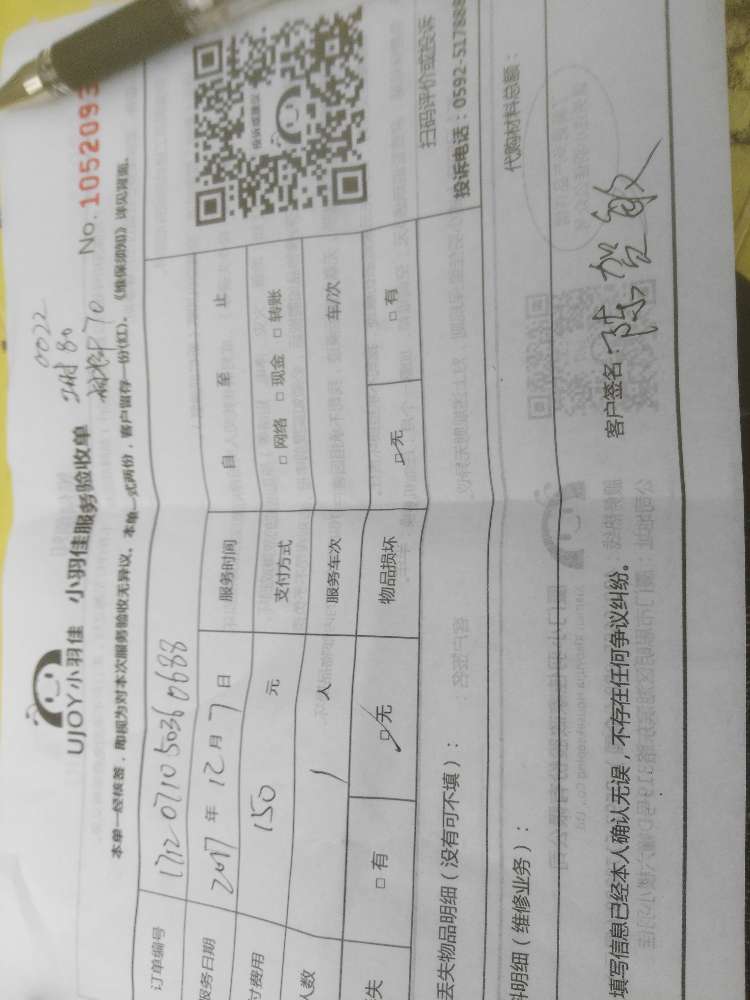 UJOY小羽佳 小羽佳服务验收单
0022
No. 1052093
本单一经核签，即视为对本次服务验收无异议。本单一式两份，客户留存一份(红)。《维保须知》详见背面。
订单编号 1712071050360688
服务日期 2017年12月7日 服务时间 自 至 止
付费用 150 元 支付方式 □网络 □现金 □转账
人数 1 人 服务车次 车/次
失 □有 □无 物品损坏 □无 □有
丢失物品明细（没有可不填）：
投诉或建议
扫码评价或投诉
投诉电话：0592-517888
料明细（维修业务）： 代购材料总额：
填写信息已经本人确认无误，不存在任何争议纠纷。 客户签名：陈贺敏